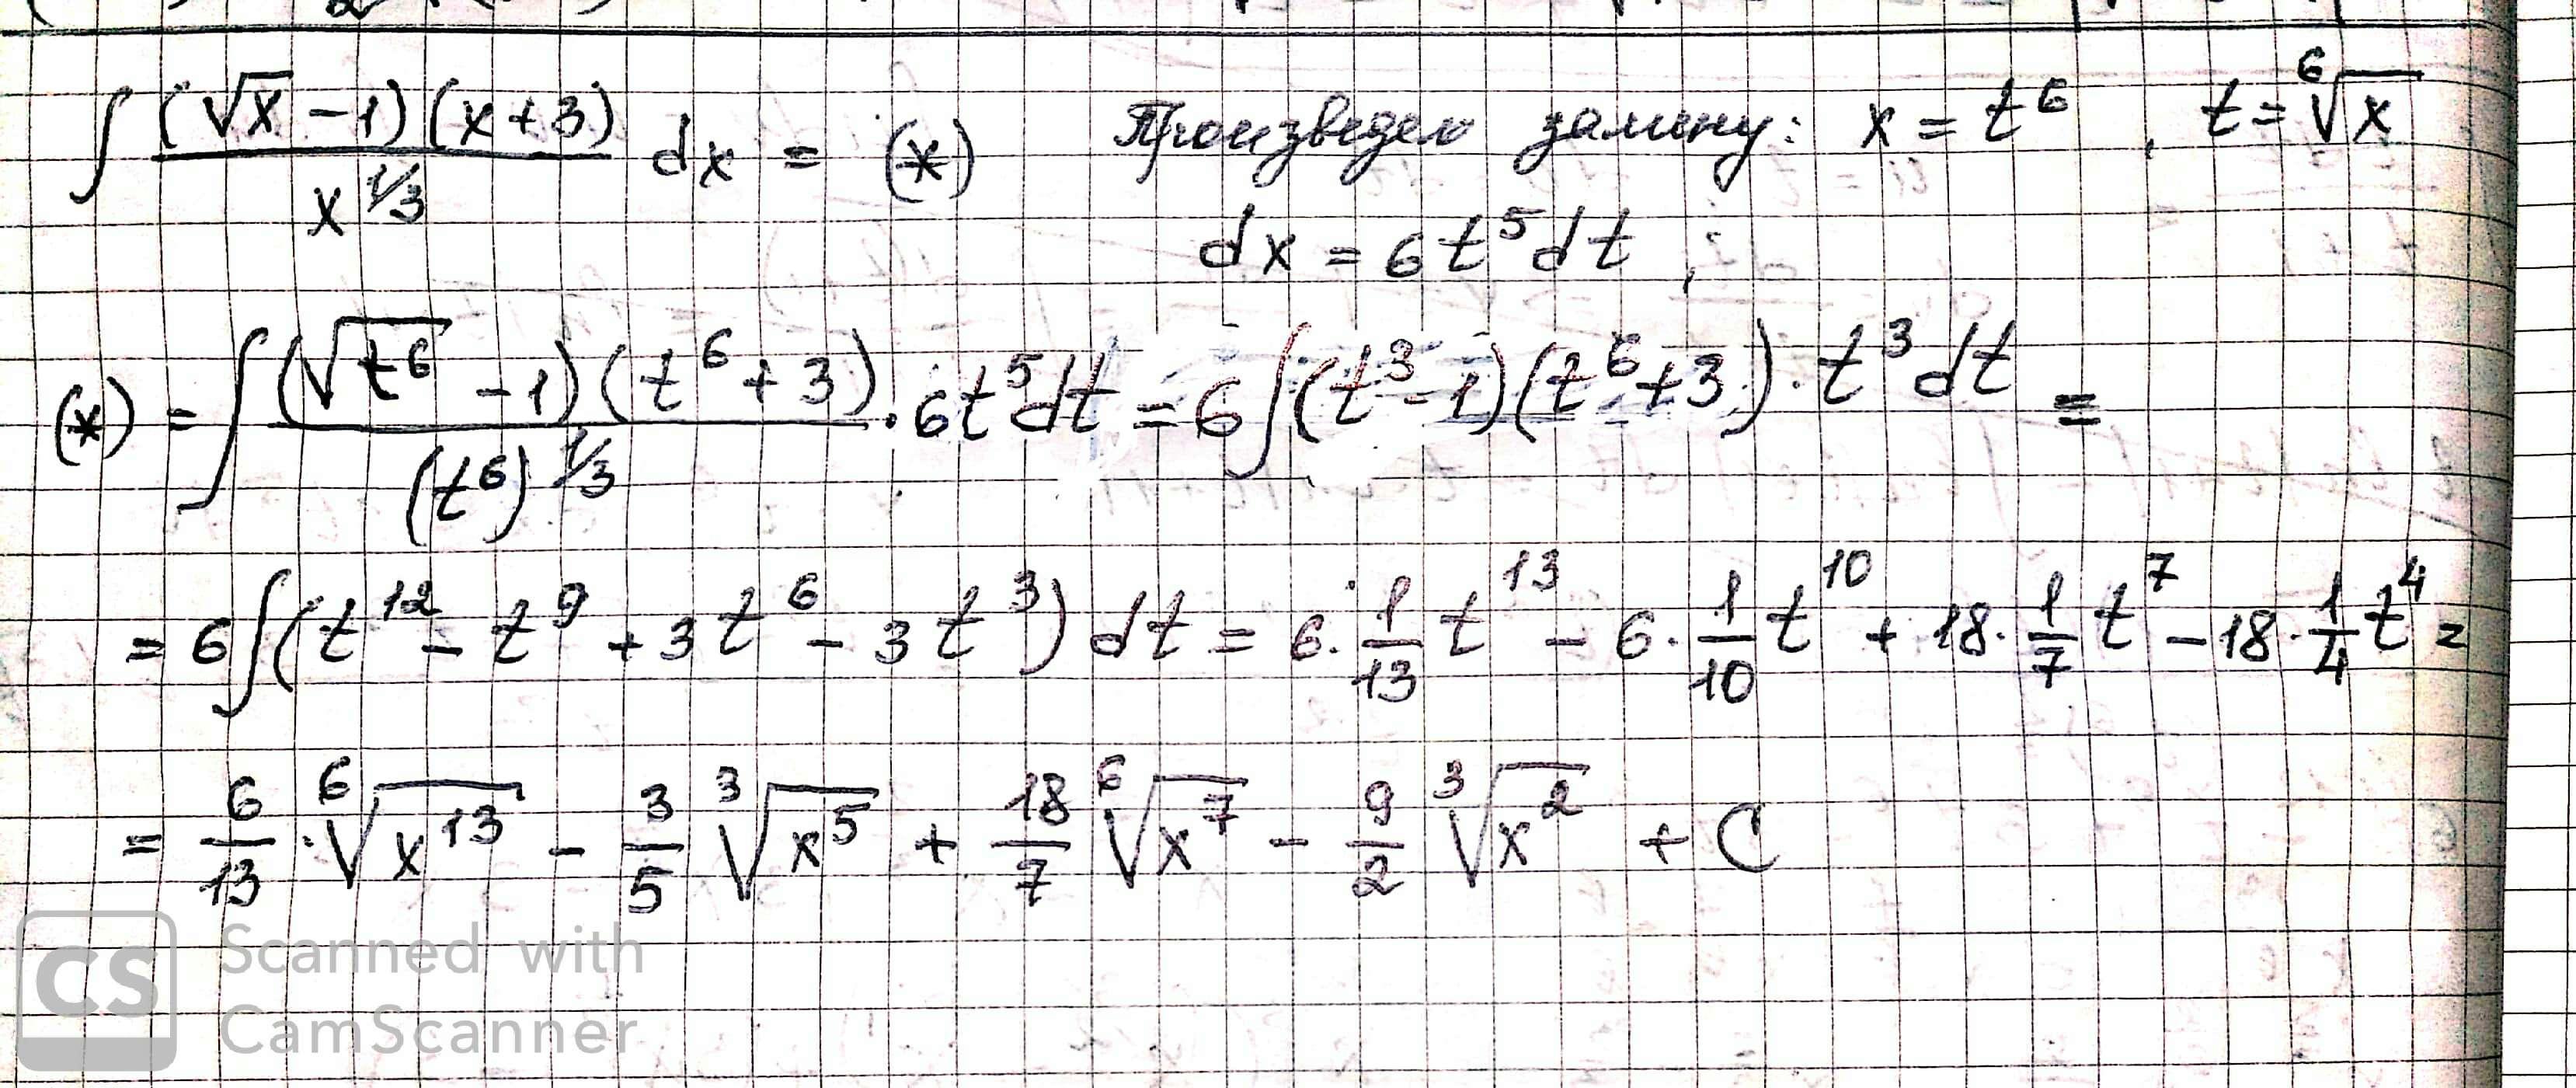 ∫ (√x - 1)(x + 3) / x^(1/3) dx = (*) Произведем замену: x = t^6, t = ⁶√x
dx = 6t^5 dt ;
(*) = ∫ (√(t^6) - 1)(t^6 + 3) / (t^6)^(1/3) · 6t^5 dt = 6∫(t^3 - 1)(t^6 + 3) · t^3 dt =
= 6∫(t^12 - t^9 + 3t^6 - 3t^3) dt = 6 · 1/13 t^13 - 6 · 1/10 t^10 + 18 · 1/7 t^7 - 18 · 1/4 t^4 =
= 6/13 · ⁶√(x^13) - 3/5 ³√(x^5) + 18/7 ⁶√(x^7) - 9/2 ³√(x^2) + C
CS Scanned with
CamScanner